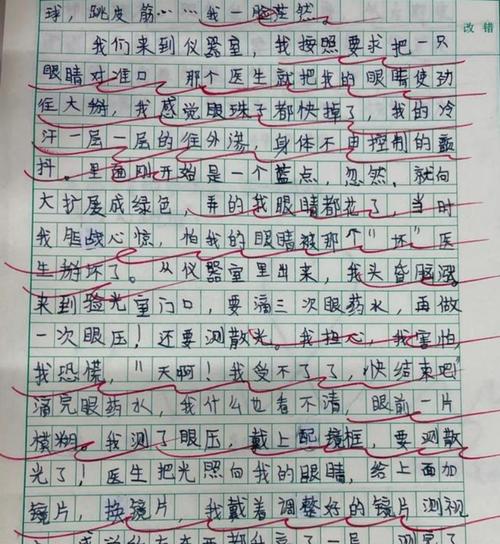 球，跳皮筋……我一脸茫然。
改错
我们来到仪器室，我按照要求把一只
眼睛对准口，那个医生就把我的眼睛使劲
往大掰，我感觉眼珠子都快掉了，我的冷
汗一层一层的往外渗，身体不由控制的
抖。里面刚开始是一个蓝点，忽然，就向
大扩展成绿色，弄的我眼睛都花了，当时
我胆战心惊，怕我的眼睛被那个"坏"医
生掰坏了。从仪器室里出来，我头昏脑涨
来到验光室门口，要滴三次眼药水，再做
一次眼压！还要测散光。我担心，我害怕
我恐慌，"天啊！我受不了了，快结束吧"
滴完眼药水，我什么也看不清，眼前一片
模糊。我测了眼压，戴上配镜框，要测散
光了！医生把光照向我的眼睛，给上面加
镜片，换镜片，我戴着调整好的镜片测视